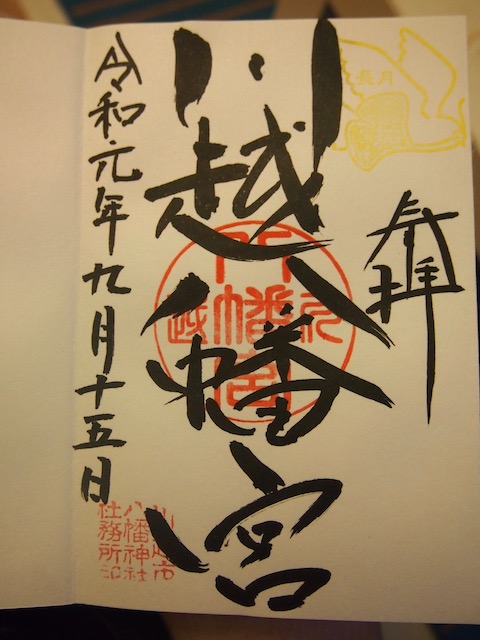 長月
奉拝
川越八幡宮
令和元年九月十五日
川越市
八幡神社
社務所印